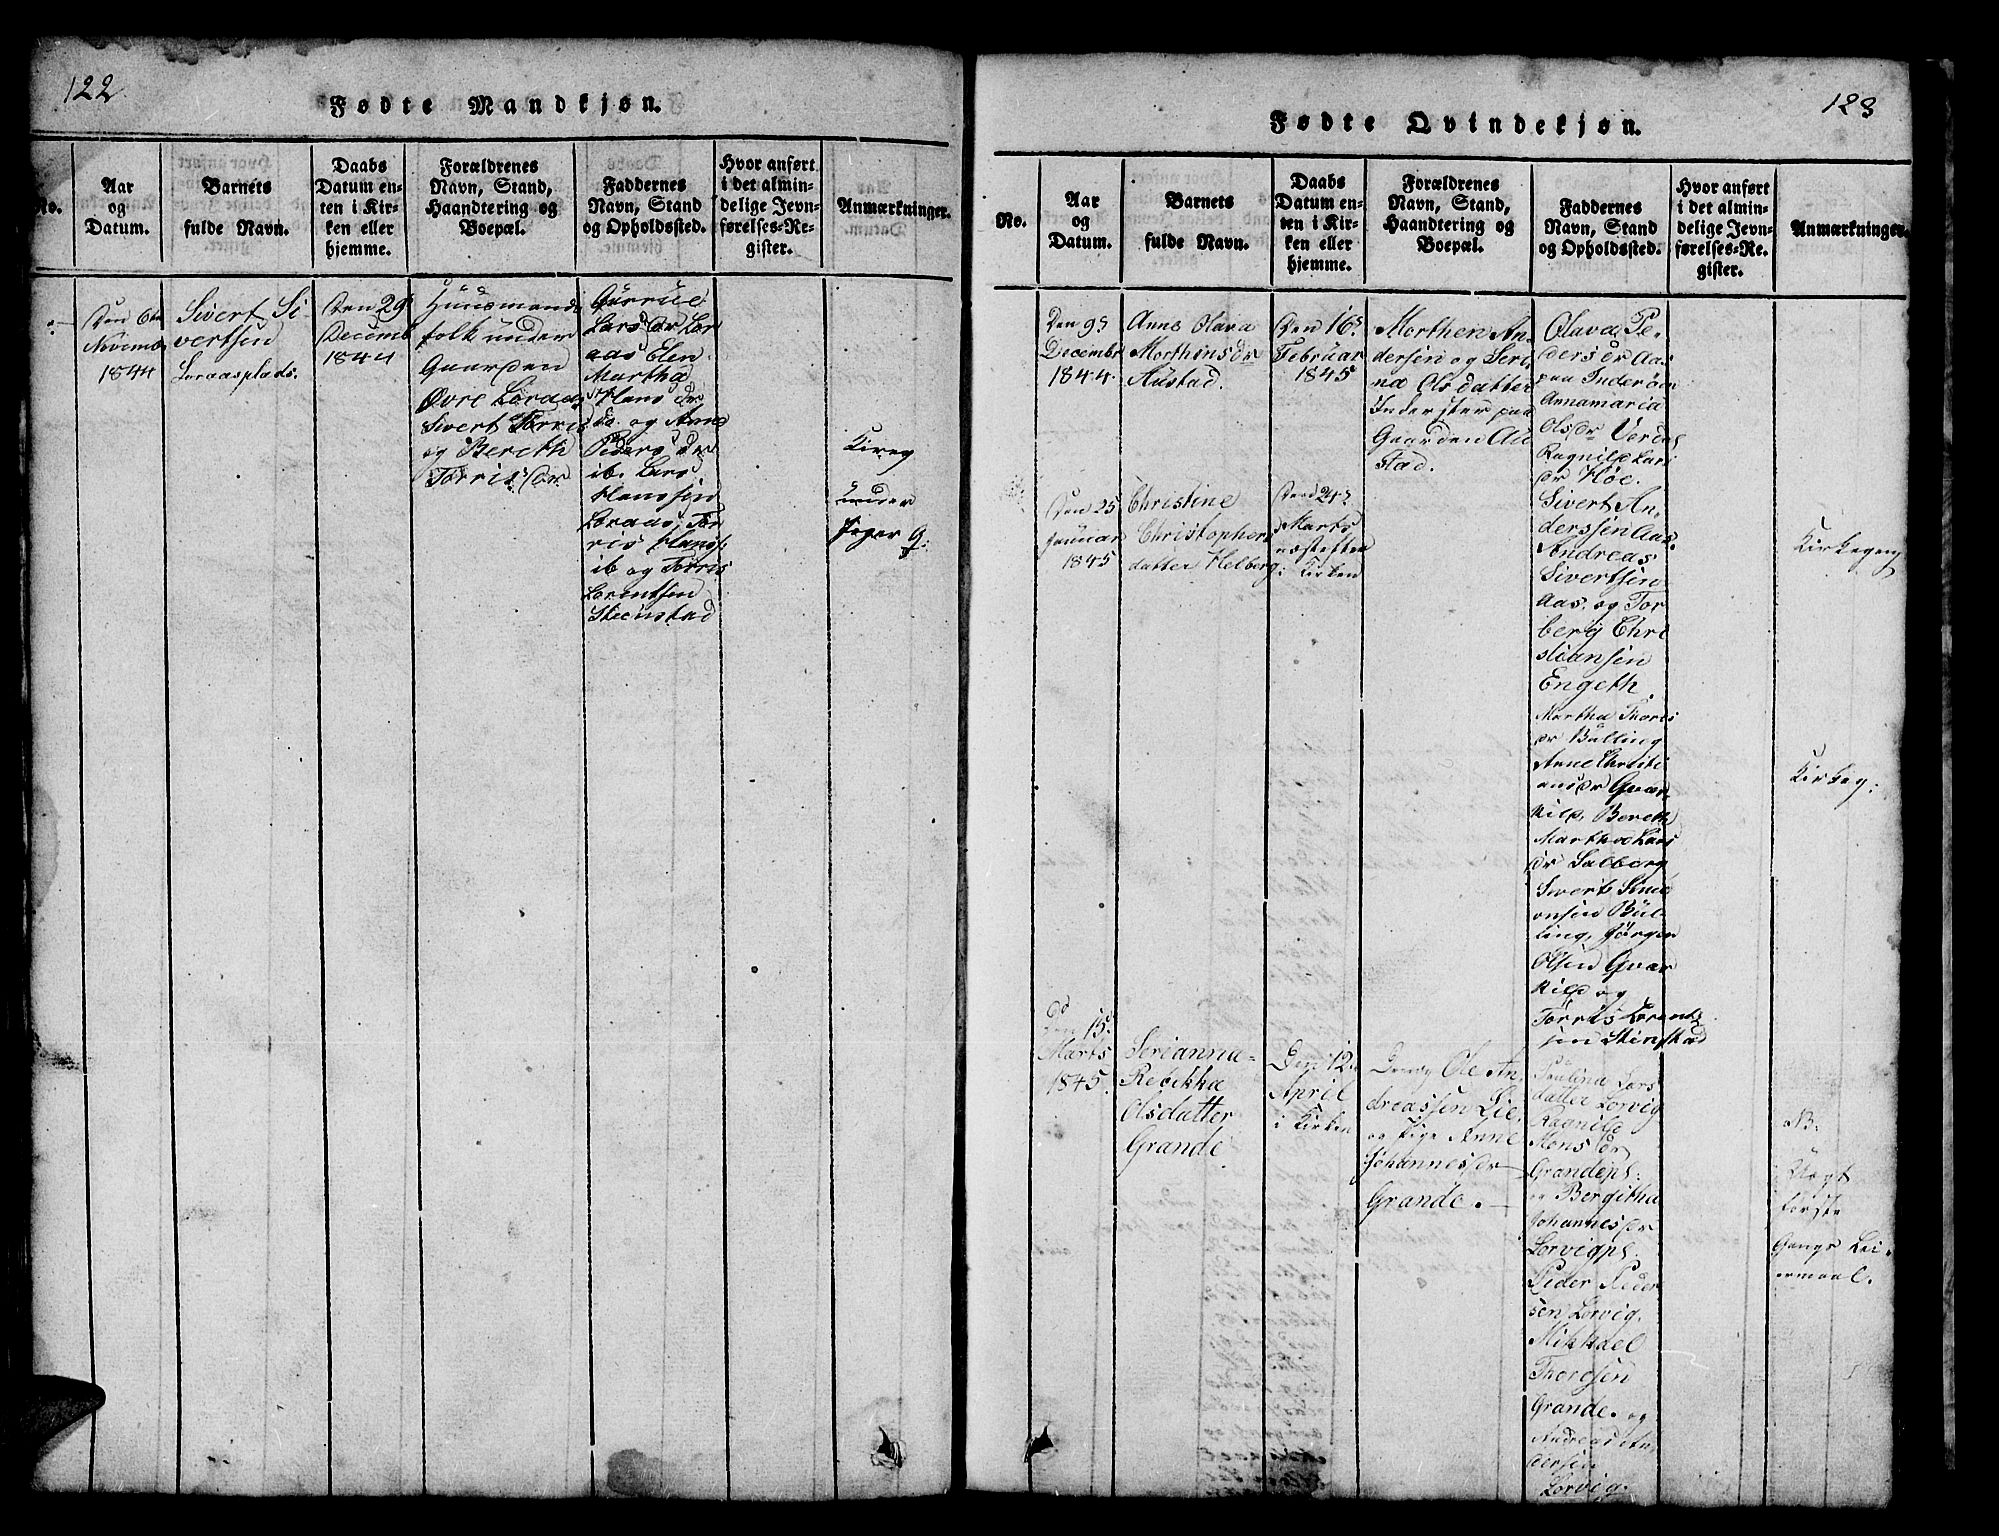 122.
Fødte Mandkjøn.
No.
Aar
og
Datum.
Barnets
fulde Navn.
Daabs
Datum en-
ten i Kir-
ken eller
hjemme.
Forældrenes
Navn, Stand,
Haandtering og
Boepæl.
Faddernes
Navn, Stand
og Opholdssted.
Hvor anført
i det almin-
delige Jevn-
førelses-Re-
gister.
Anmærkninger.
Den 6te
Novemb.
1844
Sivert Si-
vertsen
Loraasplads.
Den 29de
Decemb
1844
Huusmands
folk under
Gaarden
Øvre Loraas
Sivert Torris
og Bereth
Torrisdr
Gurrue
Larsdr Lor
aas Elen
Martha
Hansdr
do. og Anne
Pedersdr
ib. Lars
Hanssen
Loraas, Tor
ris Hanss.
ib og Torris
Lorentsen
Steenstad
Kirkeg
under
123
Fødte Qvindekjøn.
No.
Aar
og
Datum.
Barnets
fulde Navn.
Daabs
Datum en-
ten i Kir-
ken eller
hjemme.
Forældrenes
Navn, Stand,
Haandtering og
Boepæl.
Faddernes
Navn, Stand
og Opholdssted.
Hvor anført
i det almin-
delige Jevn-
førelses-Re-
gister.
Anmærkninger.
Den 9de
Decembr
1844.
Anne Olava
Morthensdr
Austad.
Den 16de
Februar
1845
Morthen An
dersen og Seri
na Olsdatter
Inderster paa
Gaarden Au
stad.
Olava Pe-
dersdr Aas
paa Inderøen
Annamaria
Olsdr Verdal
Ragnild Lars
dr Høe.
Sivert An
derssen Aas.
Andreas
Sivertsen
Aas. og Tor
berg Chri
stiansen
Engeth.
Den 25
Januar
1845
Christine
Christophers
datter Helberg
Den 24de
Marts
næstefter
i Kirken
Kirkegang
Martha Thoris
dr Bulling
Anne Christi
ansdr Qvær
kild, Bereth
Martha Lars
dr Salberg
Sivert Sime
onsen Bul-
ling, Jørgen
Olsen Qvær
kild og
Torris Lorent
sen Stenstad
Kirkeg:
Den 15de
Marts
1845.
Serianna-
Rebekka
Olsdatter
Grande
Den 12.
April
i Kirken
Ole An
dreassen Lie,
og Pige Anne
Johannesdr
Grande.
Paulina Lars
datter Lorvig
Ragnild
Monsdr
Grandepl:
og Bergitha
Johannesdr
Lorvigpl:
Peder Peder
sen Lorvig.
Mikkael
Thoresen
Grande. og
Andreas An
dersen
Lorvig.
NB:
første
Gangs Lei-
ermaal.